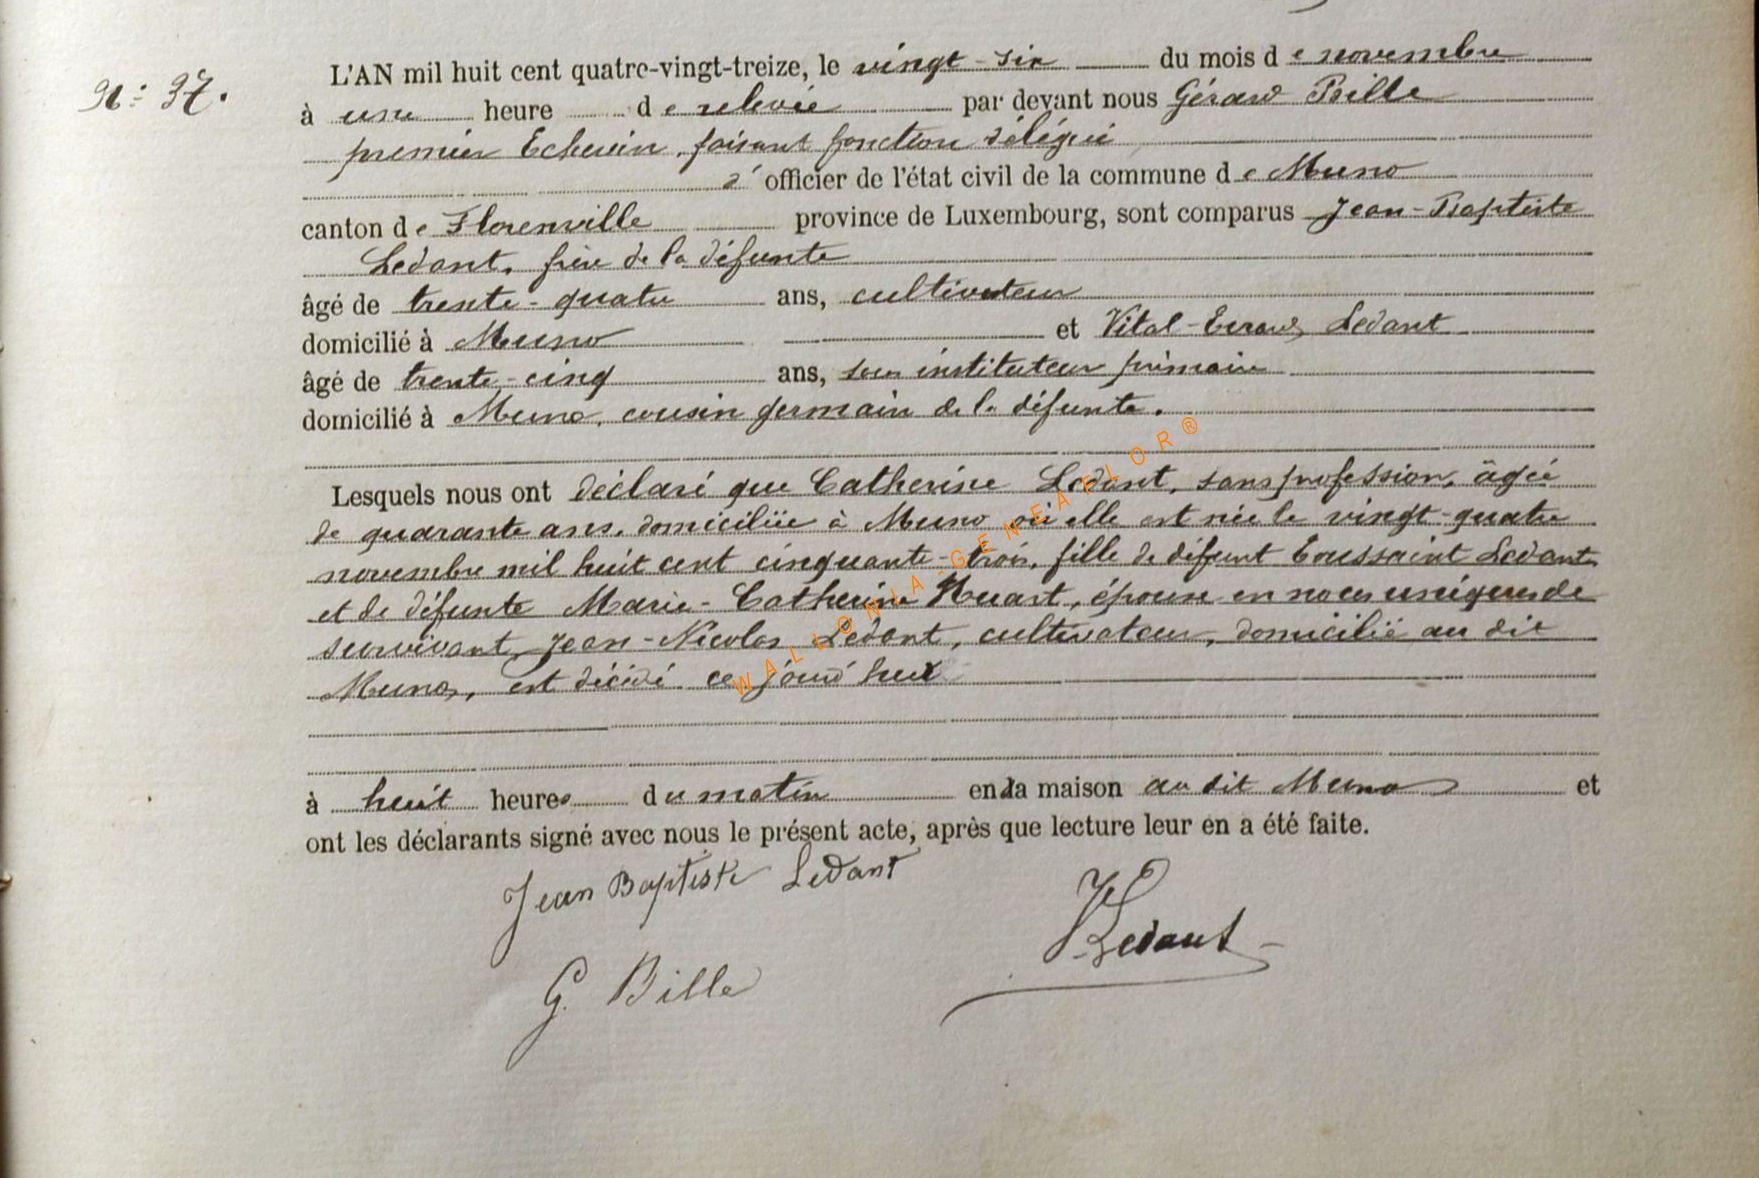 N: 37.
L'AN mil huit cent quatre-vingt-treize, le vingt-six du mois de novembre
à une heure de relevée par devant nous Gérard Bille
premier Echevin, faisant fonction délégué
d'officier de l'état civil de la commune de Muno
canton de Florenville province de Luxembourg, sont comparus Jean-Baptiste
Ledant, frère de la défunte
âgé de trente-quatre ans, cultivateur
domicilié à Muno et Vital Ledant
âgé de trente-cinq ans, sous instituteur primaire
domicilié à Muno, cousin germain de la défunte.
Lesquels nous ont déclaré que Catherine Ledant, sans profession, âgée
de quarante ans, domiciliée à Muno où elle est née le vingt-quatre
novembre mil huit cent cinquante-trois, fille de défunt Toussaint Ledant
et de défunte Marie-Catherine Huart, épouse en noces uniques de
survivant, Jean-Nicolas Ledant, cultivateur, domicilié au dit
Muno, est décédé ce jourd'hui
à huit heures du matin en la maison au dit Muno et
ont les déclarants signé avec nous le présent acte, après que lecture leur en a été faite.
Jean Baptiste Ledant
V Ledant
G. Bille
WALLONIA-GENEAFLOR®